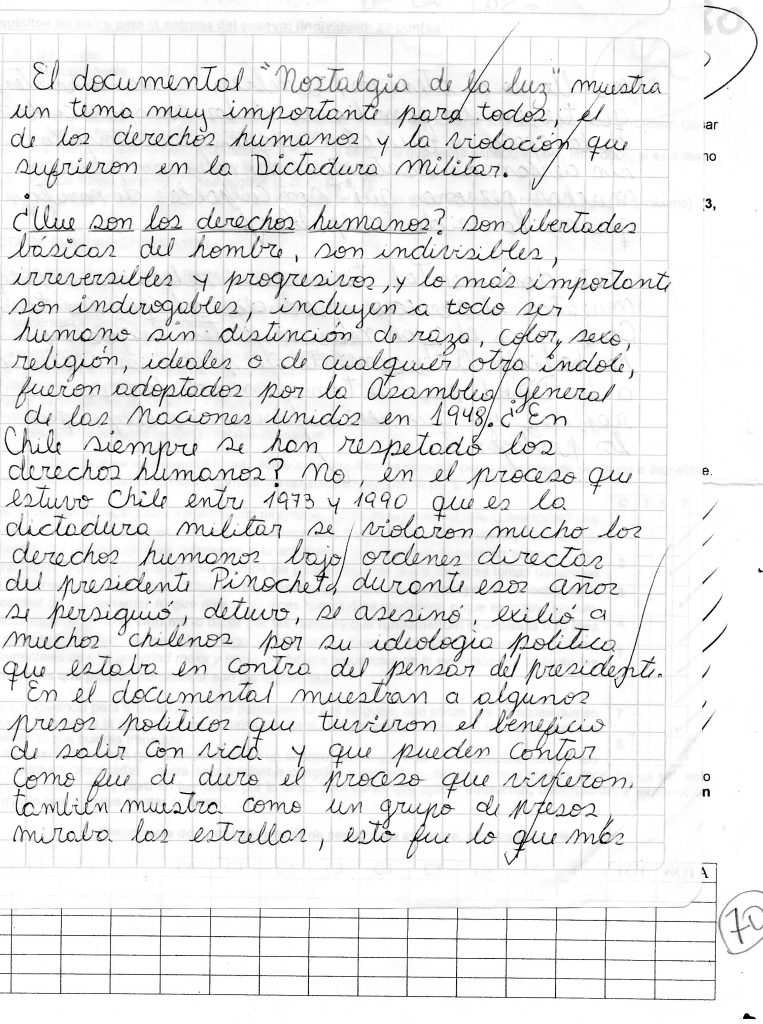 El documental "Nostalgia de la luz" muestra
un tema muy importante para todos, el
de los derechos humanos y la violación que
sufrieron en la Dictadura militar.
¿Que son los derechos humanos? son libertades
básicas del hombre, son indivisibles,
irreversibles y progresivos, y lo más importante
son inderogables, incluyen a todo ser
humano sin distinción de raza, color, sexo,
religión, ideales o de cualquier otra índole,
fueron adoptados por la Asamblea General
de las Naciones unidas en 1948. ¿En
Chile siempre se han respetado los
derechos humanos? No, en el proceso que
estuvo Chile entre 1973 y 1990 que es la
dictadura militar se violaron mucho los
derechos humanos bajo ordenes directas
del presidente Pinochet, durante esos años
se persiguió, detuvo, se asesinó, exilió a
muchos chilenos por su ideologia politica
que estaba en contra del pensar del presidente.
En el documental muestran a algunos
presos politicos que tuvieron el beneficio
de salir con vida y que pueden contar
como fue de duro el proceso que vivieron.
tambien muestra como un grupo de presos
miraba las estrellas, esto fue lo que más
ar
no
3,
e.
o
n
A
70